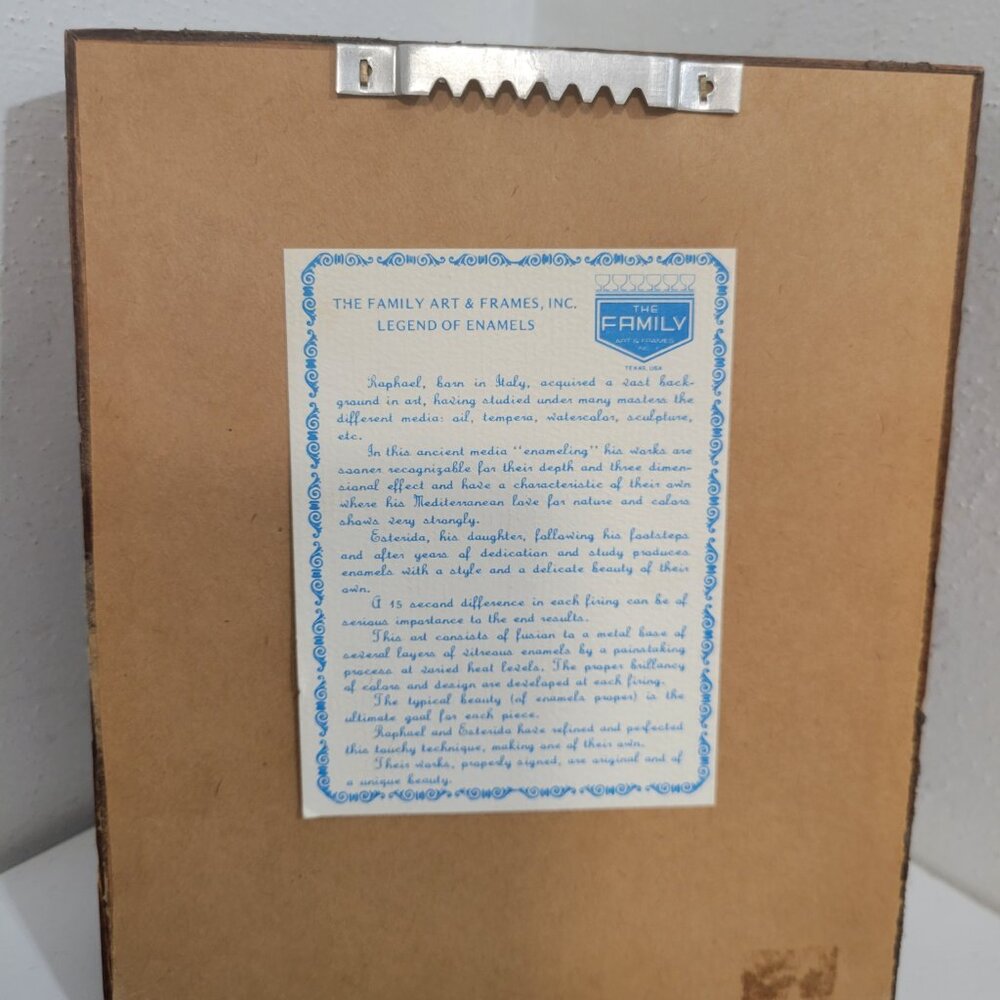 THE FAMILY ART & FRAMES, INC.
LEGEND OF ENAMELS
THE
FAMILY
ART & FRAMES
INC.
TEXAS, USA
Raphael, born in Italy, acquired a vast back-
ground in art, having studied under many masters the
different media: oil, tempera, watercolor, sculpture,
etc.
In this ancient media "enameling" his works are
sooner recognizable for their depth and three dimen-
sional effect and have a characteristic of their own
where his Mediterranean love for nature and colors
shows very strongly.
Esterida, his daughter, following his footsteps
and after years of dedication and study produces
enamels with a style and a delicate beauty of their
own.
A 15 second difference in each firing can be of
serious importance to the end results.
This art consists of fusion to a metal base of
several layers of vitreous enamels by a painstaking
process at varied heat levels. The proper brillancy
of colors and design are developed at each firing.
The typical beauty (of enamels proper) is the
ultimate goal for each piece.
Raphael and Esterida have refined and perfected
this touchy technique, making one of their own.
Their works, properly signed, are original and of
a unique beauty.